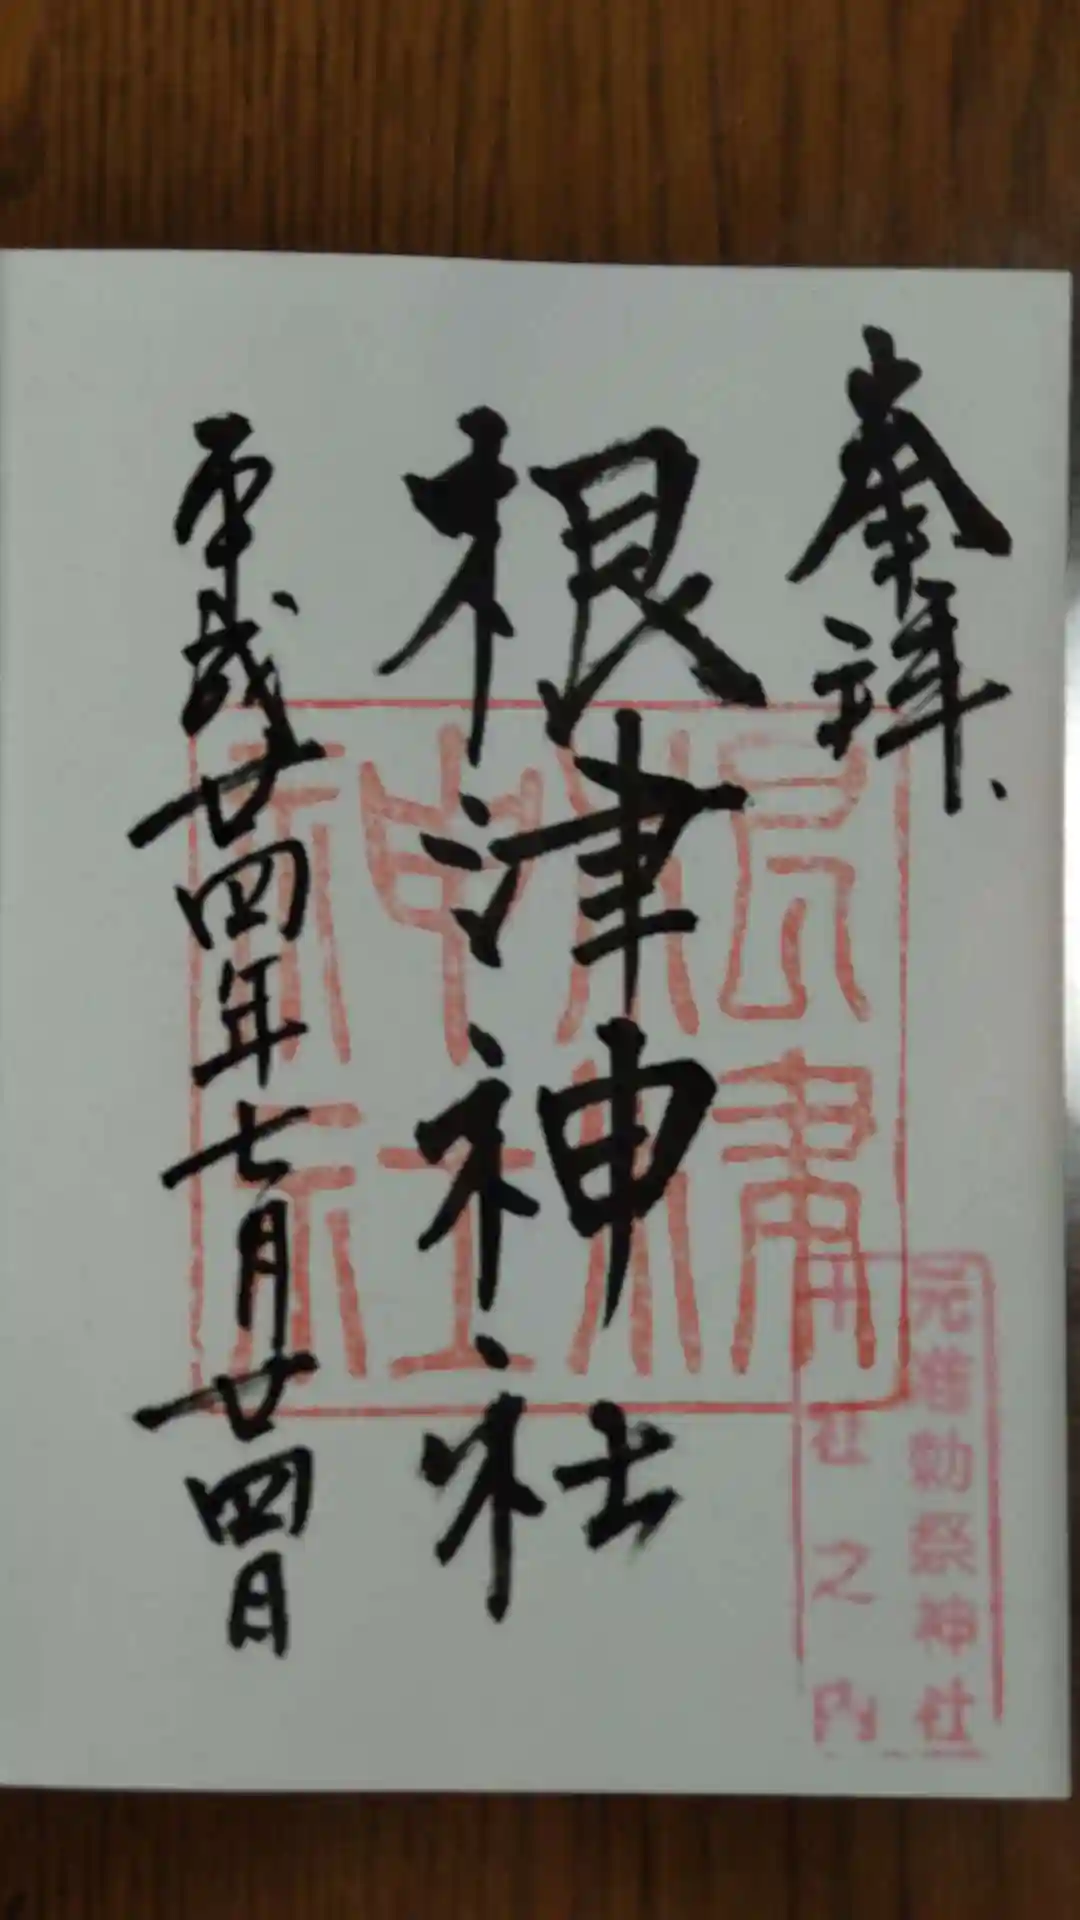 奉拝
根津神社
平成廿四年七月廿四日
根津
神社
元准勅祭神社
十社之内